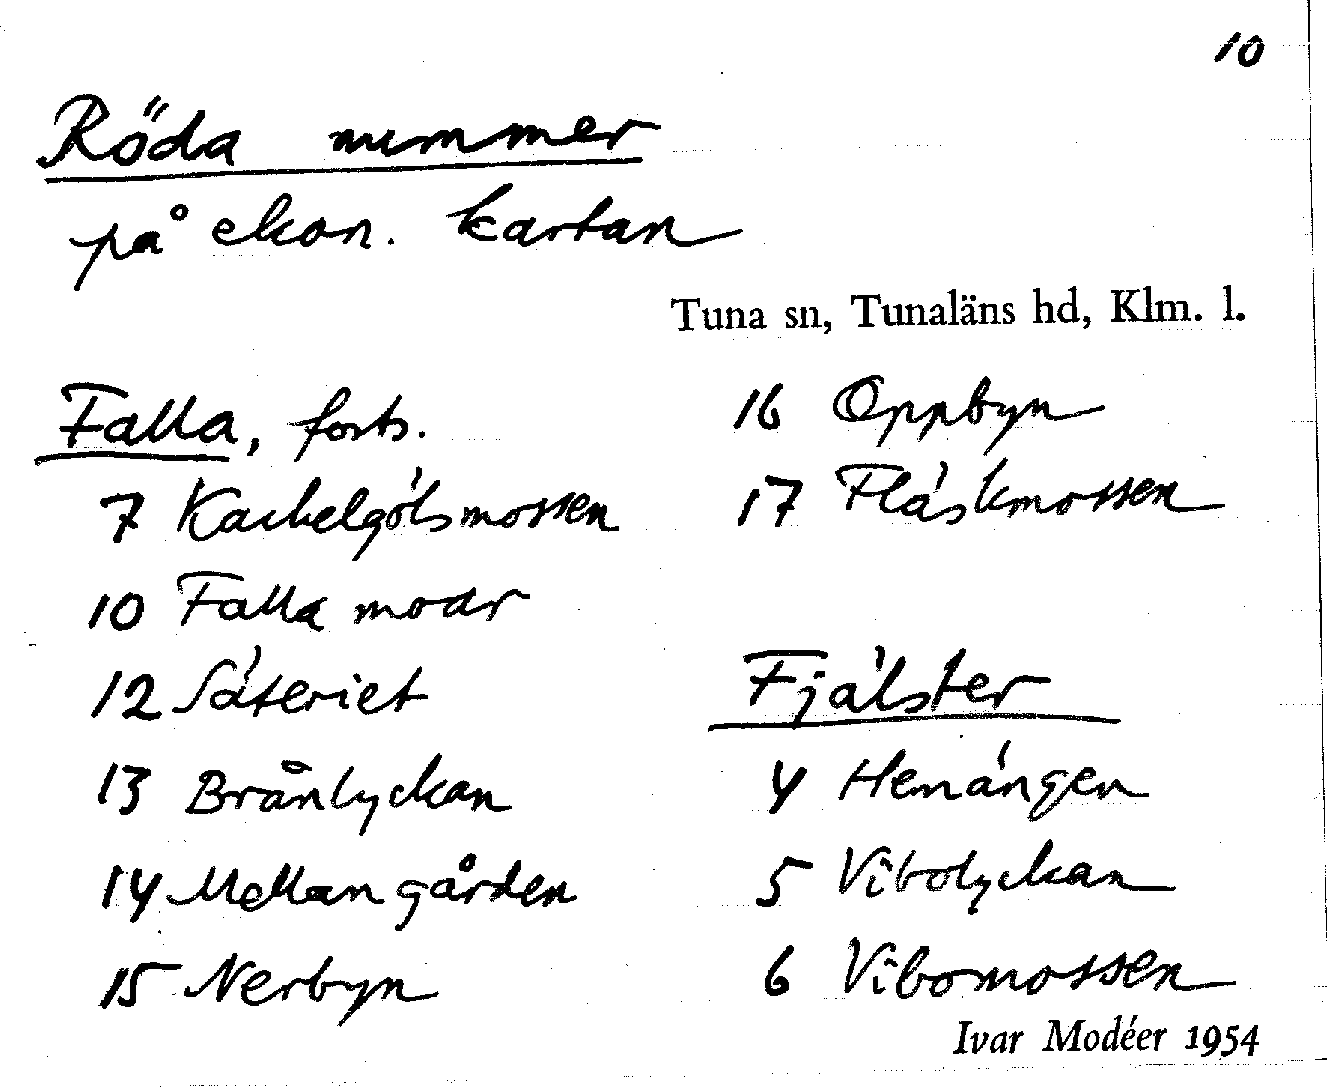 10
Röda nummer
på ekon. kartan
Tuna sn, Tunaläns hd, Klm. l.
Falla, forts.
7 Kackelgölsmossen
10 Falla moar
12 Säteriet
13 Brånlyckan
14 Mellangården
15 Nerbyn
16 Oppbyn
17 Fläskmossen
Fjälster
4 Hemängen
5 Vibolyckan
6 Vibomossen
Ivar Modéer 1954